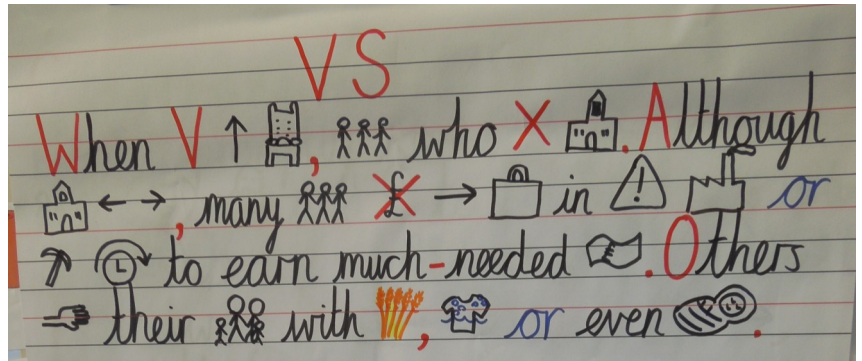 VS
When V ↑ , who X . Although
← → , many £ → in ! or
L to earn much-needed . Others
their with , or even .